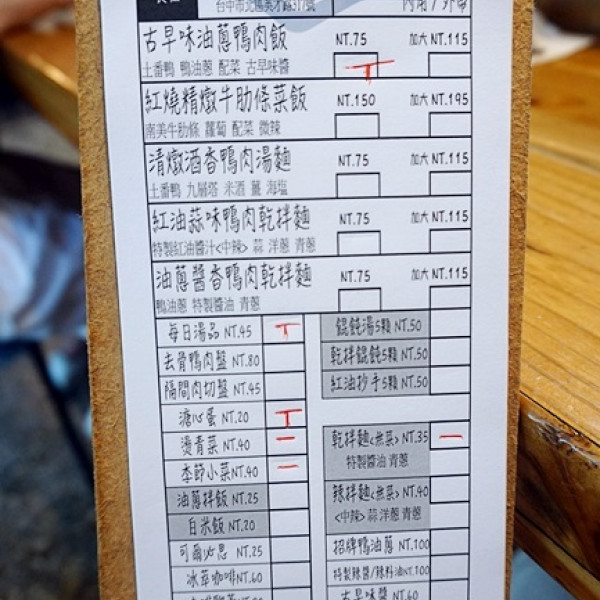 台中市北區英才路317號 內用/外帶
古早味油蔥鴨肉飯 NT.75 加大 NT.115
土番鴨 鴨油蔥 配菜 古早味醬
紅燒精燉牛肋條菜飯 NT.150 加大 NT.195
南美牛肋條 蘿蔔 配菜 微辣
清燉酒香鴨肉湯麵 NT.75 加大 NT.115
土番鴨 九層塔 米酒 薑 海塩
紅油蒜味鴨肉乾拌麵 NT.75 加大 NT.115
特製紅油醬汁<中辣> 蒜 洋蔥 青蔥
油蔥醬香鴨肉乾拌麵 NT.75 加大 NT.115
鴨油蔥 特製醬油 青蔥
每日湯品 NT.45
去骨鴨肉盤 NT.80
隔間肉切盤 NT.45
溏心蛋 NT.20
燙青菜 NT.40
季節小菜 NT.40
油蔥拌飯 NT.25
白米飯 NT.20
可爾必思 NT.25
冰萃咖啡 NT.60
餛飩湯5顆 NT.50
乾拌餛飩5顆 NT.50
紅油抄手5顆 NT.50
乾拌麵<無菜> NT.35
特製醬油 青蔥
辣拌麵<無菜> NT.40
<中辣> 蒜 洋蔥 青蔥
招牌鴨油蔥 NT.100
特製辣醬/辣料油 NT.100
古早味醬 NT.60